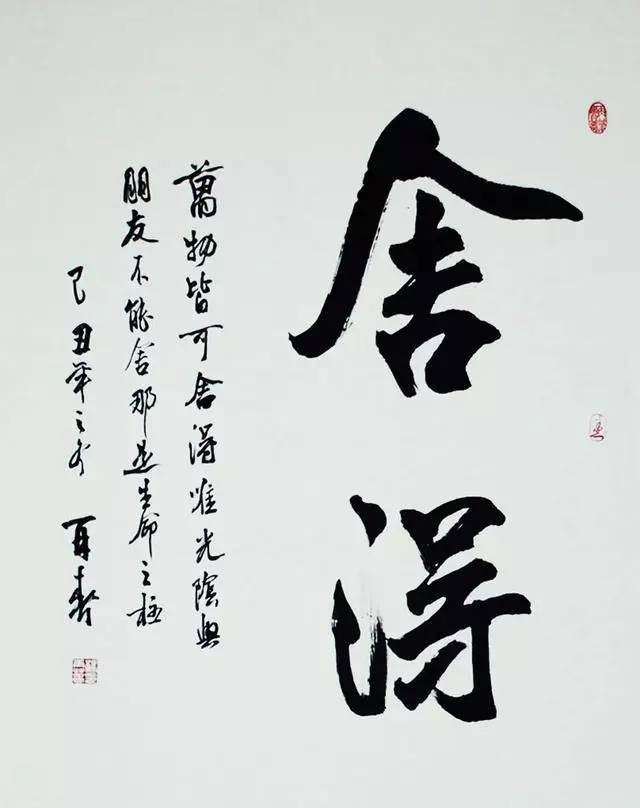 舍得
萬物皆可舍得唯光陰與
朋友不能舍那是生命之極
己丑年之冬